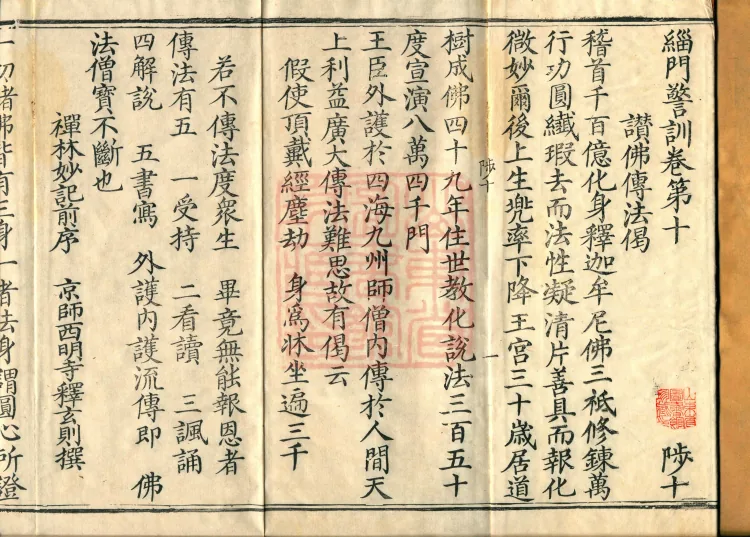 緇門警訓卷第十 陟十
讃佛傳法偈
稽首千百億化身釋迦牟尼佛三祇修鍊萬
行功圓纖瑕去而法性凝清片善具而報化
微妙爾後上生兜率下降王宮三十歲居道
樹成佛四十九年住世教化說法三百五十
度宣演八萬四千門
王臣外護於四海九州師僧內傳於人間天
上利益廣大傳法難思故有偈云
假使頂戴經塵劫 身爲牀坐遍三千
若不傳法度衆生 畢竟無能報恩者
傳法有五 一受持 二看讀 三諷誦
四解說 五書寫 外護內護流傳即 佛
法僧寶不斷也
禪林妙記前序 京師西明寺釋玄則撰
一切諸佛皆有三身一者法身謂圓心所證
陟十
一